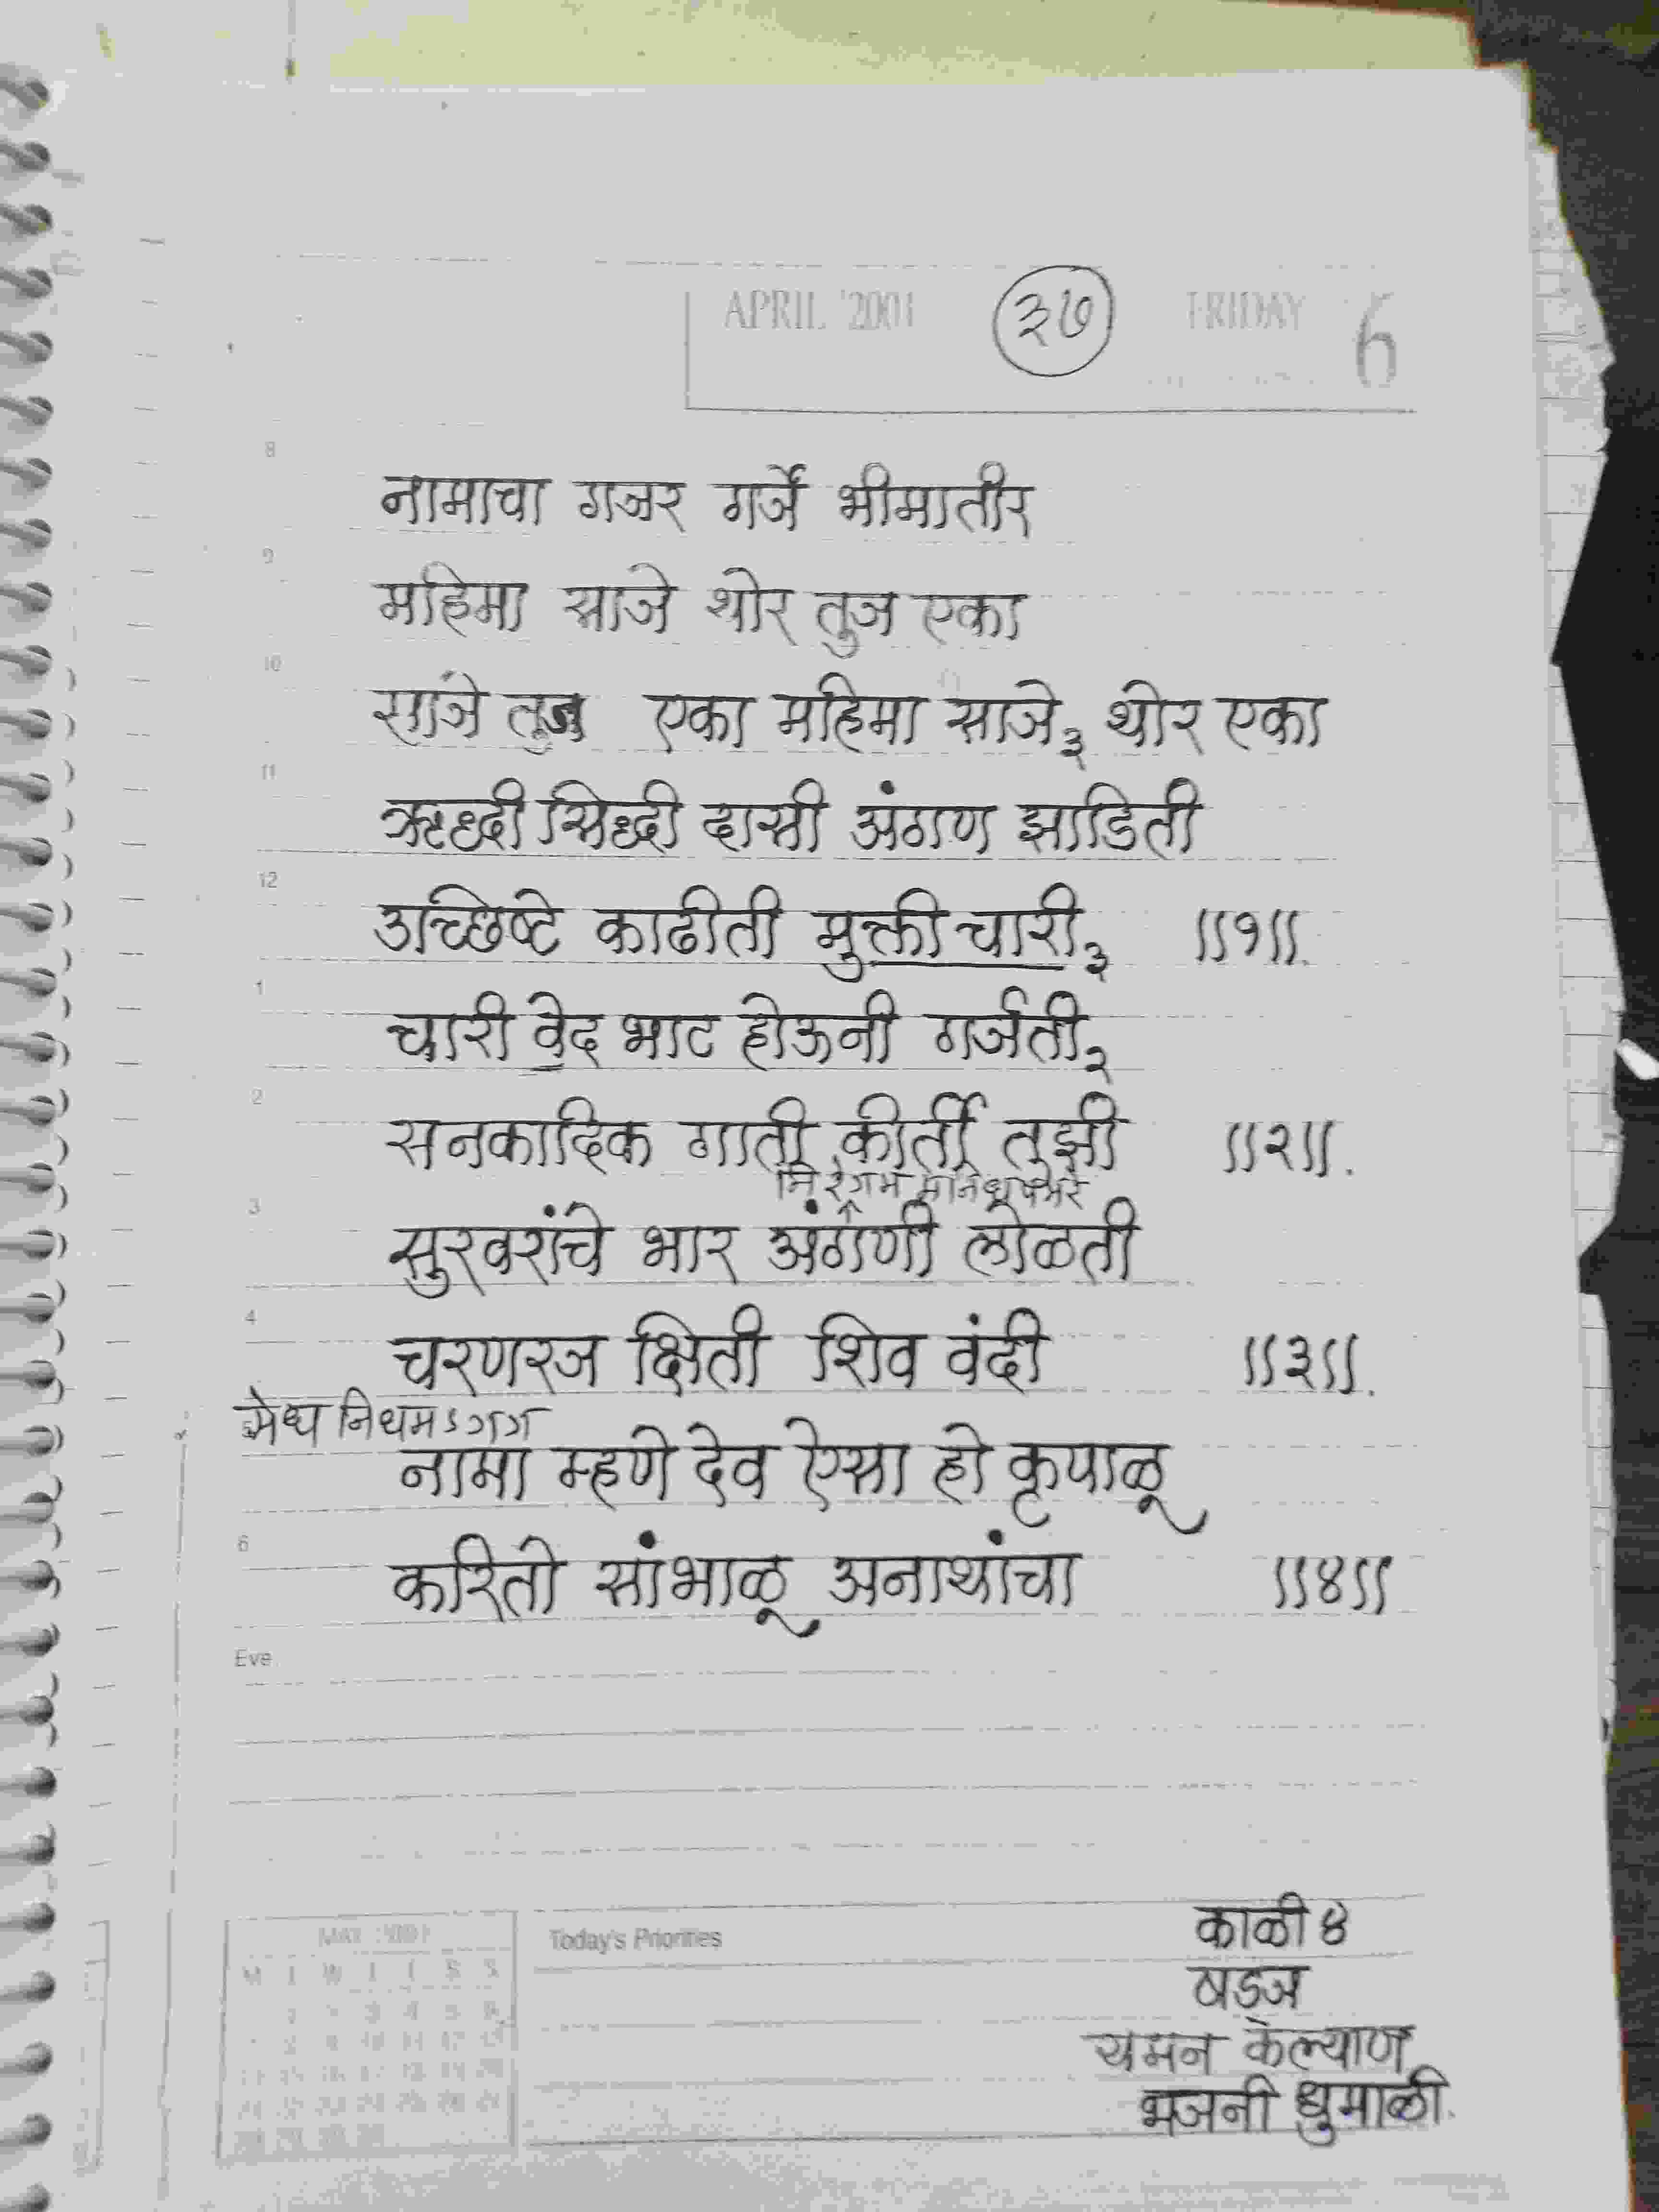 APRIL '2001 ३७ FRIDAY 6
8
नामाचा गजर गर्जे भीमातीर
9
महिमा साजे थोर तुज एका
10
साजे तुज एका महिमा साजे३ थोर एका
11
ऋद्धी सिद्धी दासी अंगण झाडिती
12
उच्छिष्टे काढीती मुक्ती चारी३ ॥१॥.
1
चारी वेद भाट होऊनी गर्जती२
2
सनकादिक गाती कीर्ती तुझी ॥२॥.
3
सुरवरांचे भार अंगणी लोळती
4
चरणरज क्षिती शिव वंदी ॥३॥.
नामा म्हणे देव ऐसा हो कृपाळू
6
करितो सांभाळू अनाथांचा ॥४॥
Eve
MAY 2001
Today's Priorities
काळी ४
षडज
यमन कल्याण
भजनी धुमाळी.